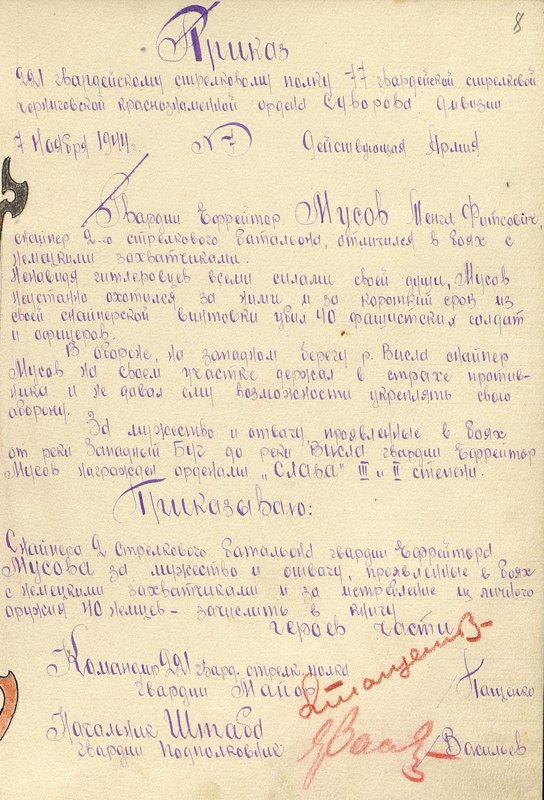 8
Приказ
221 гвардейскому стрелковому полку 77 гвардейской стрелковой
черниговской краснознаменной ордена Суворова дивизии
7 ноября 1944г. № 7 Действующая Армия
Гвардии Ефрейтор Мусов Менга Фитсович,
снайпер 2-го стрелкового батальона, отличился в боях с
немецкими захватчиками.
Ненавидя гитлеровцев всеми силами своей души, Мусов
неустанно охотился за ними и за короткий срок из
своей снайперской винтовки убил 40 фашистских солдат
и офицеров.
В обороне, на западном берегу р. Висла снайпер
Мусов на своем участке держал в страхе против-
ника и не давал ему возможности укреплять свою
оборону.
За мужество и отвагу, проявленные в боях
от реки Западный Буг до реки Висла гвардии Ефрейтор
Мусов награжден орденами „Слава" III и II степени.
Приказываю:
Снайпера 2 стрелкового батальона гвардии Ефрейтора
Мусова за мужество и отвагу, проявленные в боях
с немецкими захватчиками и за истребление из личного
оружия 40 немцев – зачислить в книгу
героев части
Командир 221 гвард. стрелк. полка
гвардии Майор Пащенко
Начальник Штаба
гвардии Подполковник /Васильев